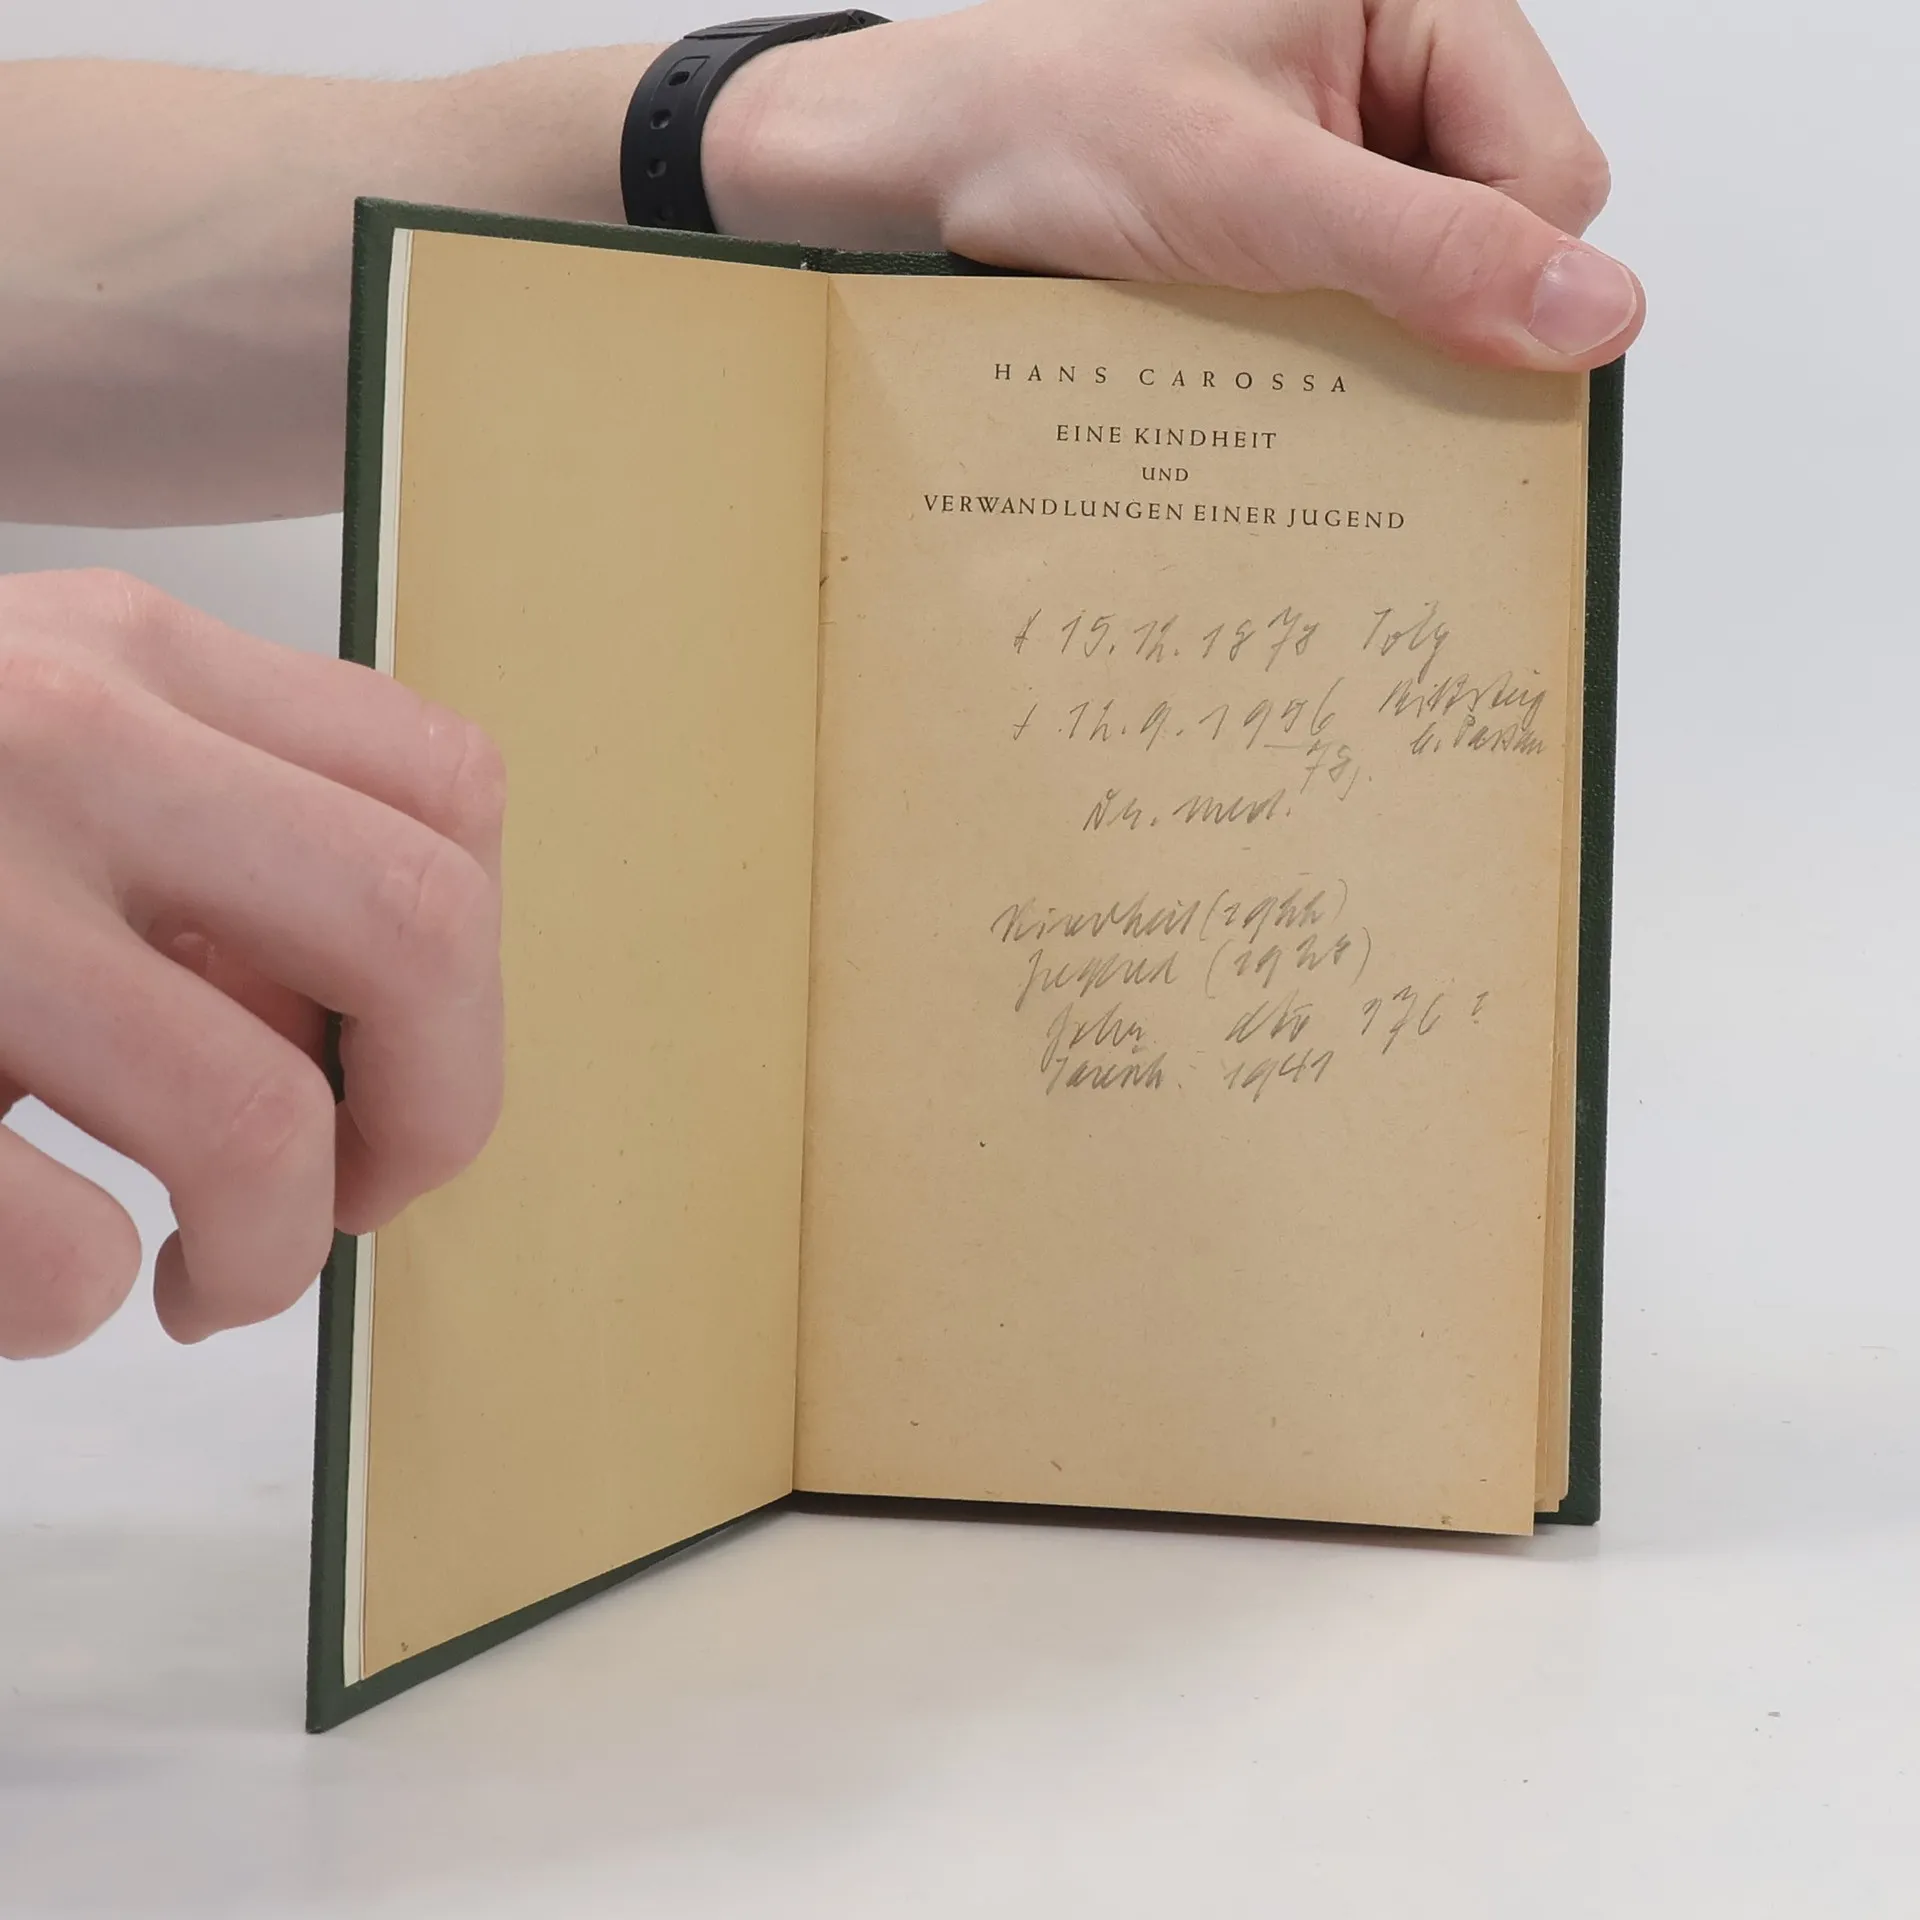 HANS CAROSSA
EINE KINDHEIT
UND
VERWANDLUNGEN EINER JUGEND
* 15.12.1878 Tölz
+ 12.9.1956 Rittsteig
b. Passau
78j.
Dr. med.
Kindheit (1922)
Jugend (1928)
dto
1941